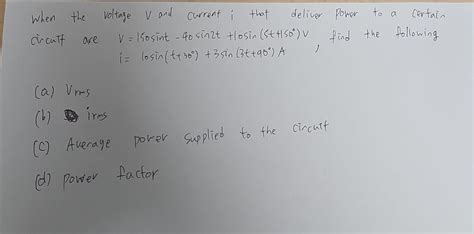 When the voltage V and current i that deliver power to a certain
circuit are V = 150sint - 40sin2t + 10sin(5t+150°)V , find the following
i = 10sin(t+30°) + 3sin(3t+90°) A
(a) Vrms
(b) irms
(c) Average power supplied to the circuit
(d) power factor